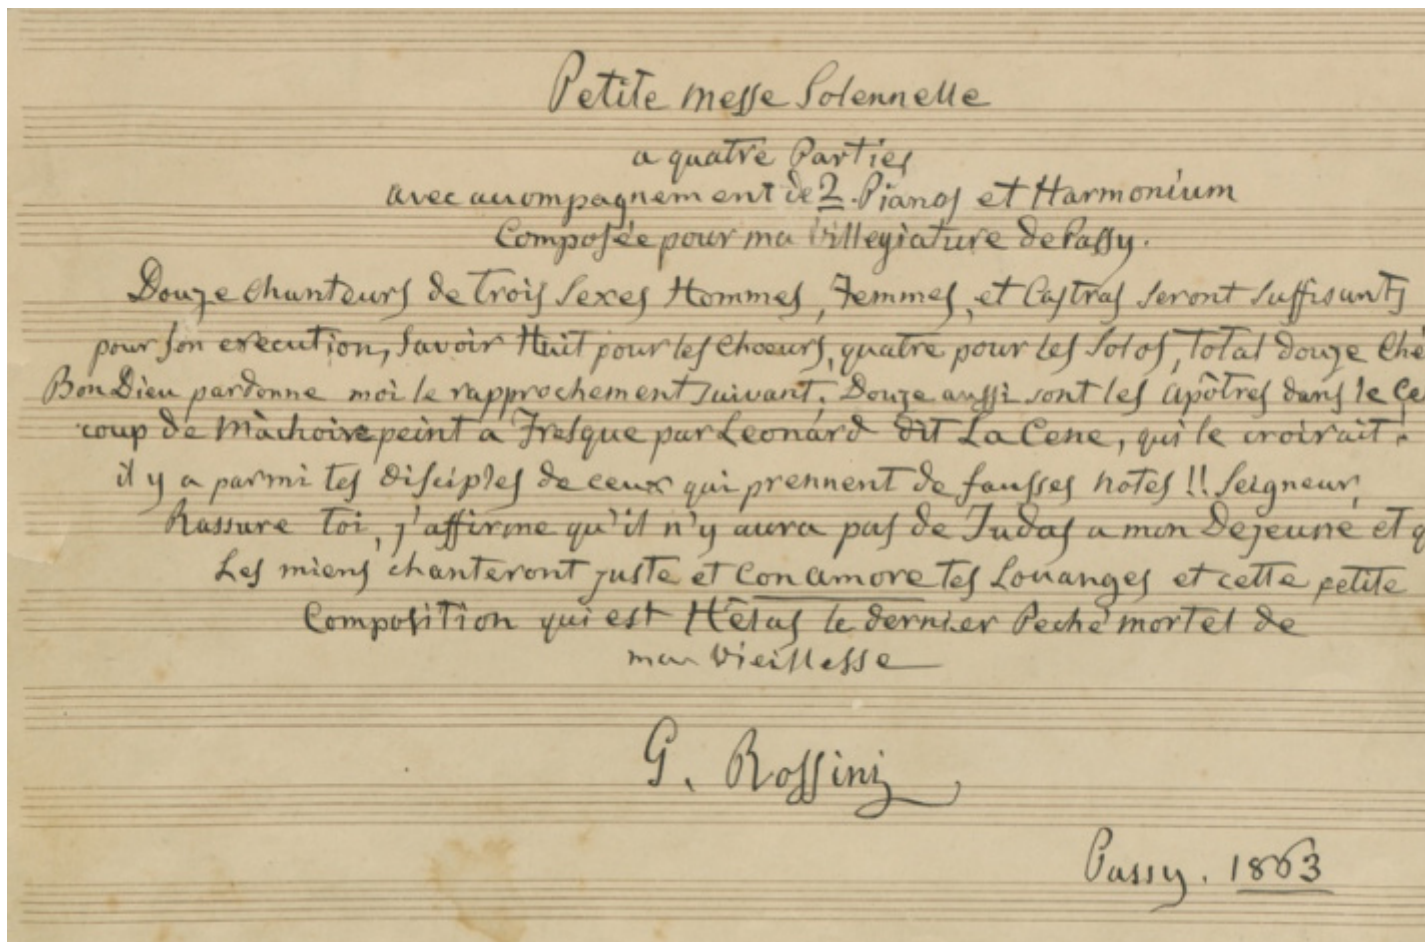 Petite messe Solennelle
a quatre Parties
avec accompagnement de 2 Pianos et Harmonium
Composée pour ma villegiature de Passy.
Douze chanteurs de trois Sexes Hommes, Femmes, et Castras seront suffisants
pour son execution, Savoir Huit pour les Choeurs, quatre pour les Solos, total douze Ché
Bon Dieu pardonne moi le rapprochement suivant, Douze aussi sont les apôtres dans le Ce
coup de Mâchoire peint a Fresque par Leonard dit La Cene, qui le croirait.
il y a parmi tes disciples de ceux qui prennent de fausses notes!! Seigneur,
Rassure toi, j'affirme qu'il n'y aura pas de Judas a mon Dejeuné et q
Les miens chanteront juste et Con amore tes Louanges et cette petite
Composition qui est Hélas le dernier Peché mortel de
ma vieillesse
G. Rossini
Passy. 1863